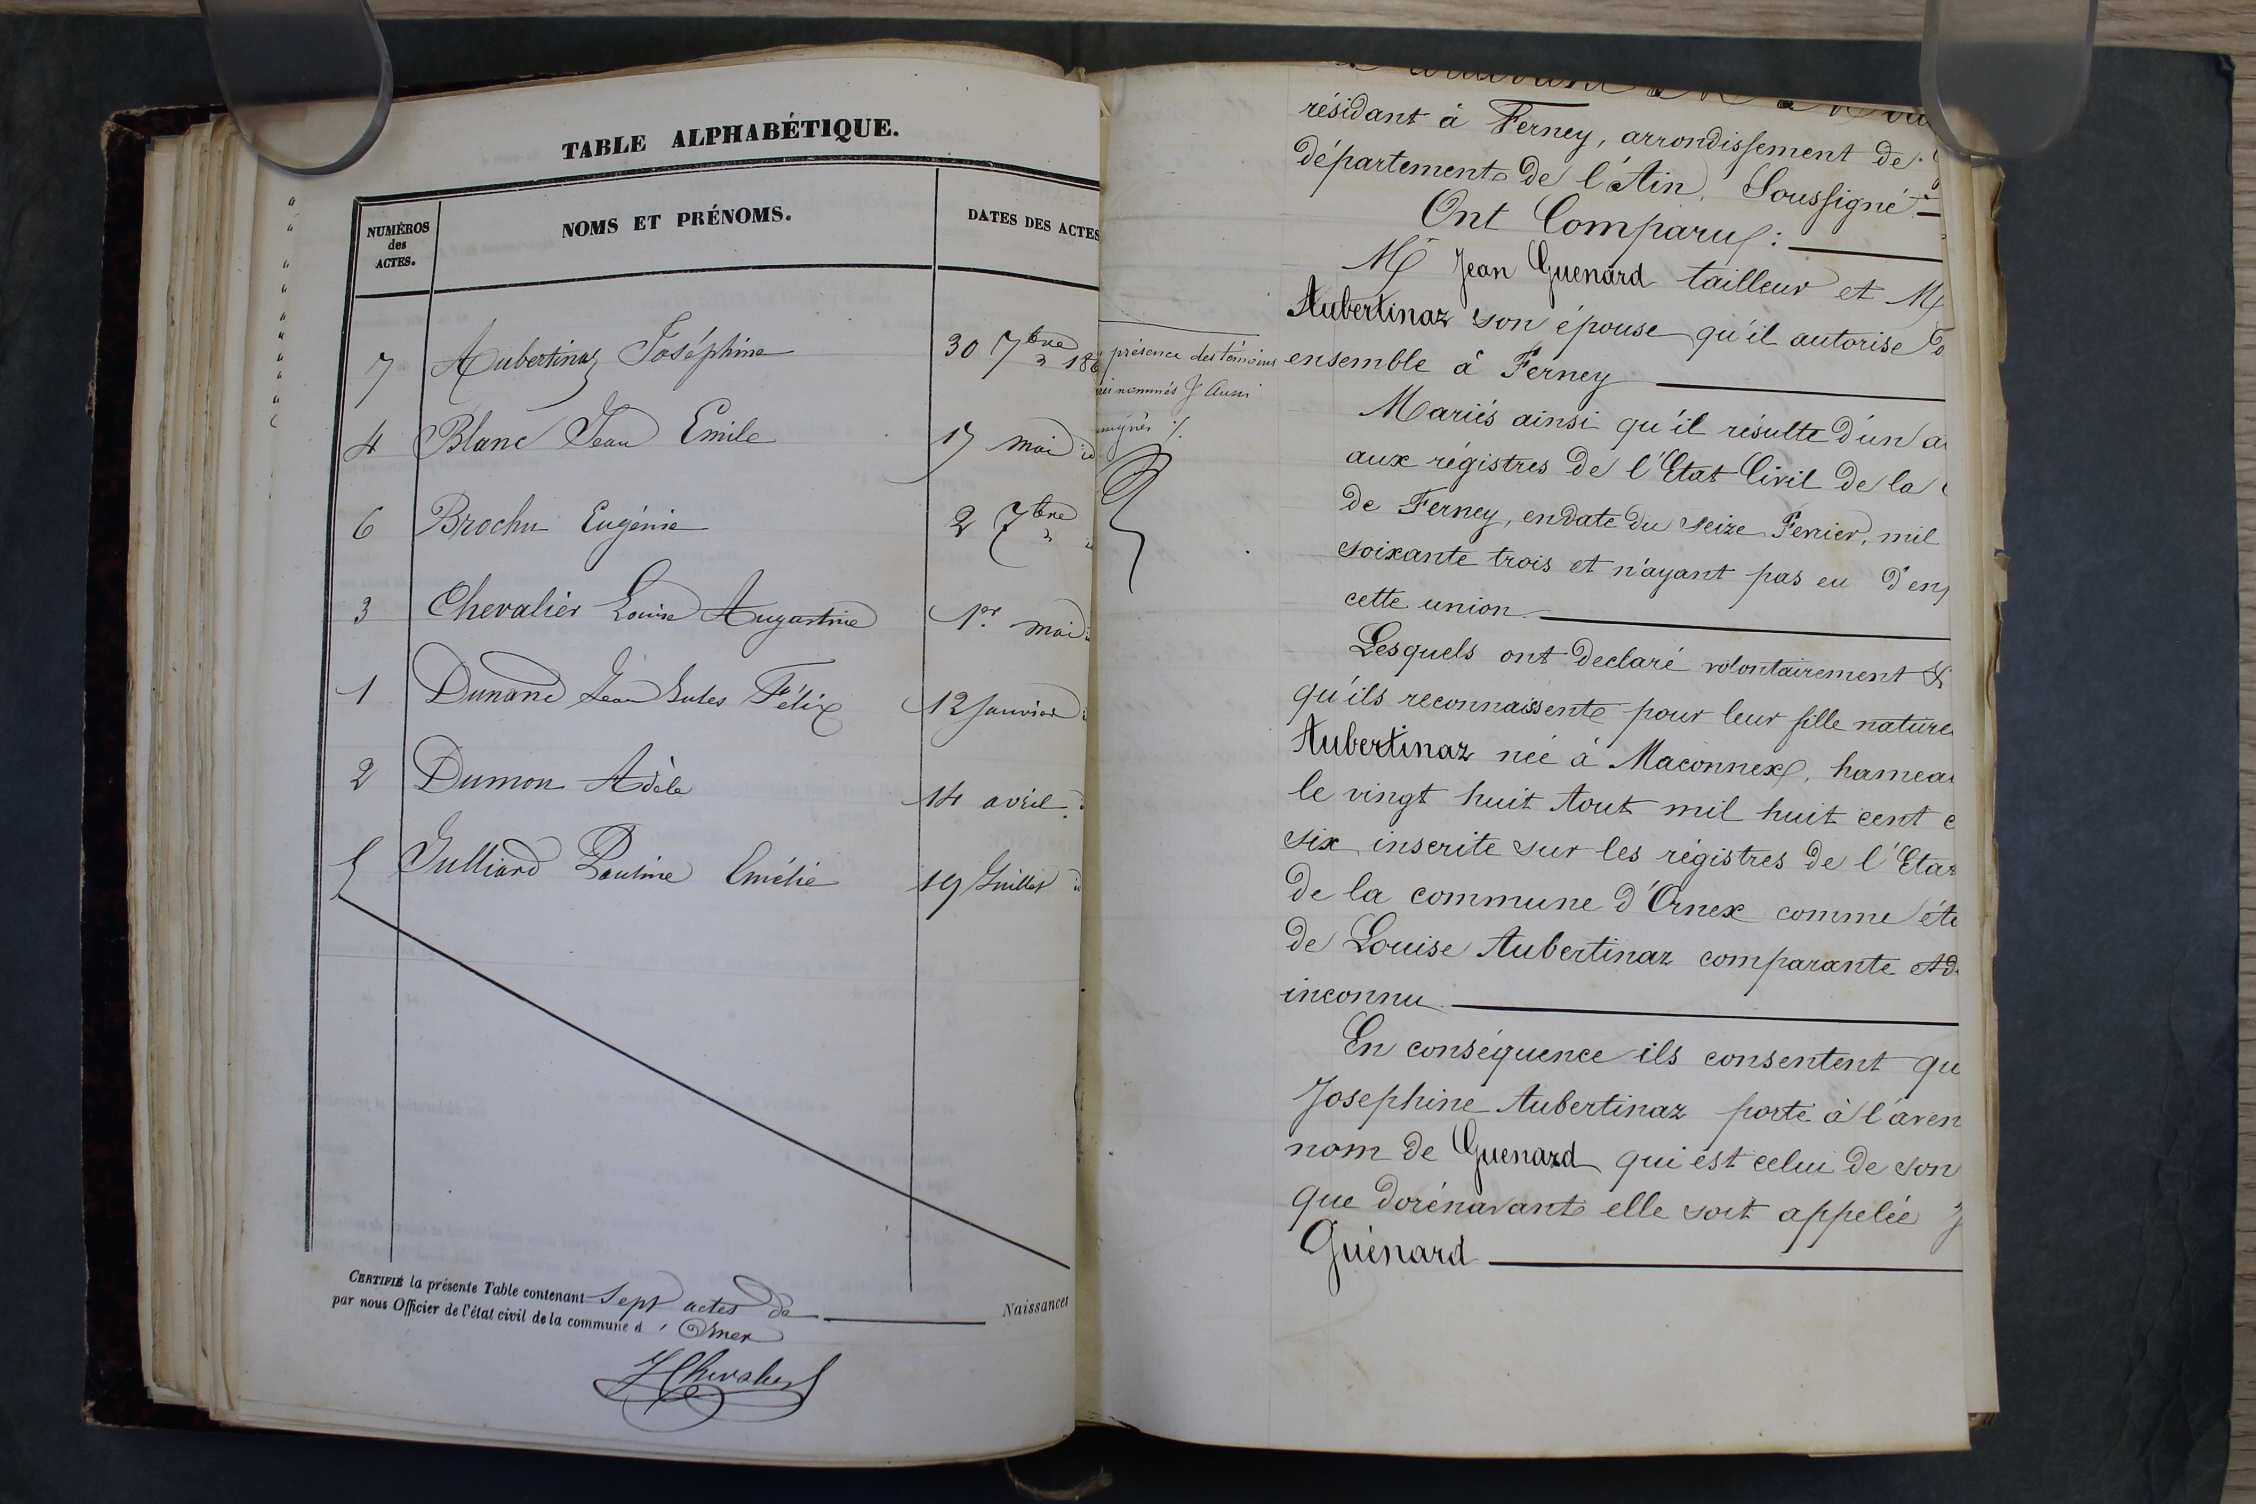 TABLE ALPHABÉTIQUE.
NUMÉROS des ACTES.
NOMS ET PRÉNOMS.
DATES DES ACTES
7 Aubertinaz Joséphine 30 7bre 186
4 Blanc Jean Emile 17 mai id
6 Brochu Eugénie 2 7bre
3 Chevalier Louise Augustine 1er mai
1 Dunand Jean Jules Félix 12 Janvier
2 Dumon Adèle 14 avril
5 Julliard Pauline Emélie 19 Juillet
CERTIFIÉ la présente Table contenant Sept actes de Naissances
par nous Officier de l'état civil de la commune d' Ornex
présence des témoins
nommés & aussi
résidant à Ferney, arrondissement de
département de l'Ain, Soussigné
Ont Comparus :
Mr Jean Guenard tailleur et M
Aubertinaz son épouse qu'il autorise
ensemble à Ferney
Mariés ainsi qu'il résulte d'un a
aux régistres de l'Etat Civil de la
de Ferney, en date du seize Fevrier, mil
soixante trois et n'ayant pas eu d'en
cette union
Lesquels ont declaré volontairement &
qu'ils reconnaissent pour leur fille nature
Aubertinaz née à Maconnex, hamea
le vingt huit Aout mil huit cent c
six inscrite sur les régistres de l'Eta
de la commune d'Ornex comme éta
de Louise Aubertinaz comparante et d
inconnu
En conséquence ils consentent qu
Josephine Aubertinaz porte à l'aven
nom de Guenard qui est celui de son
que dorénavant elle soit appelée J
Guénard